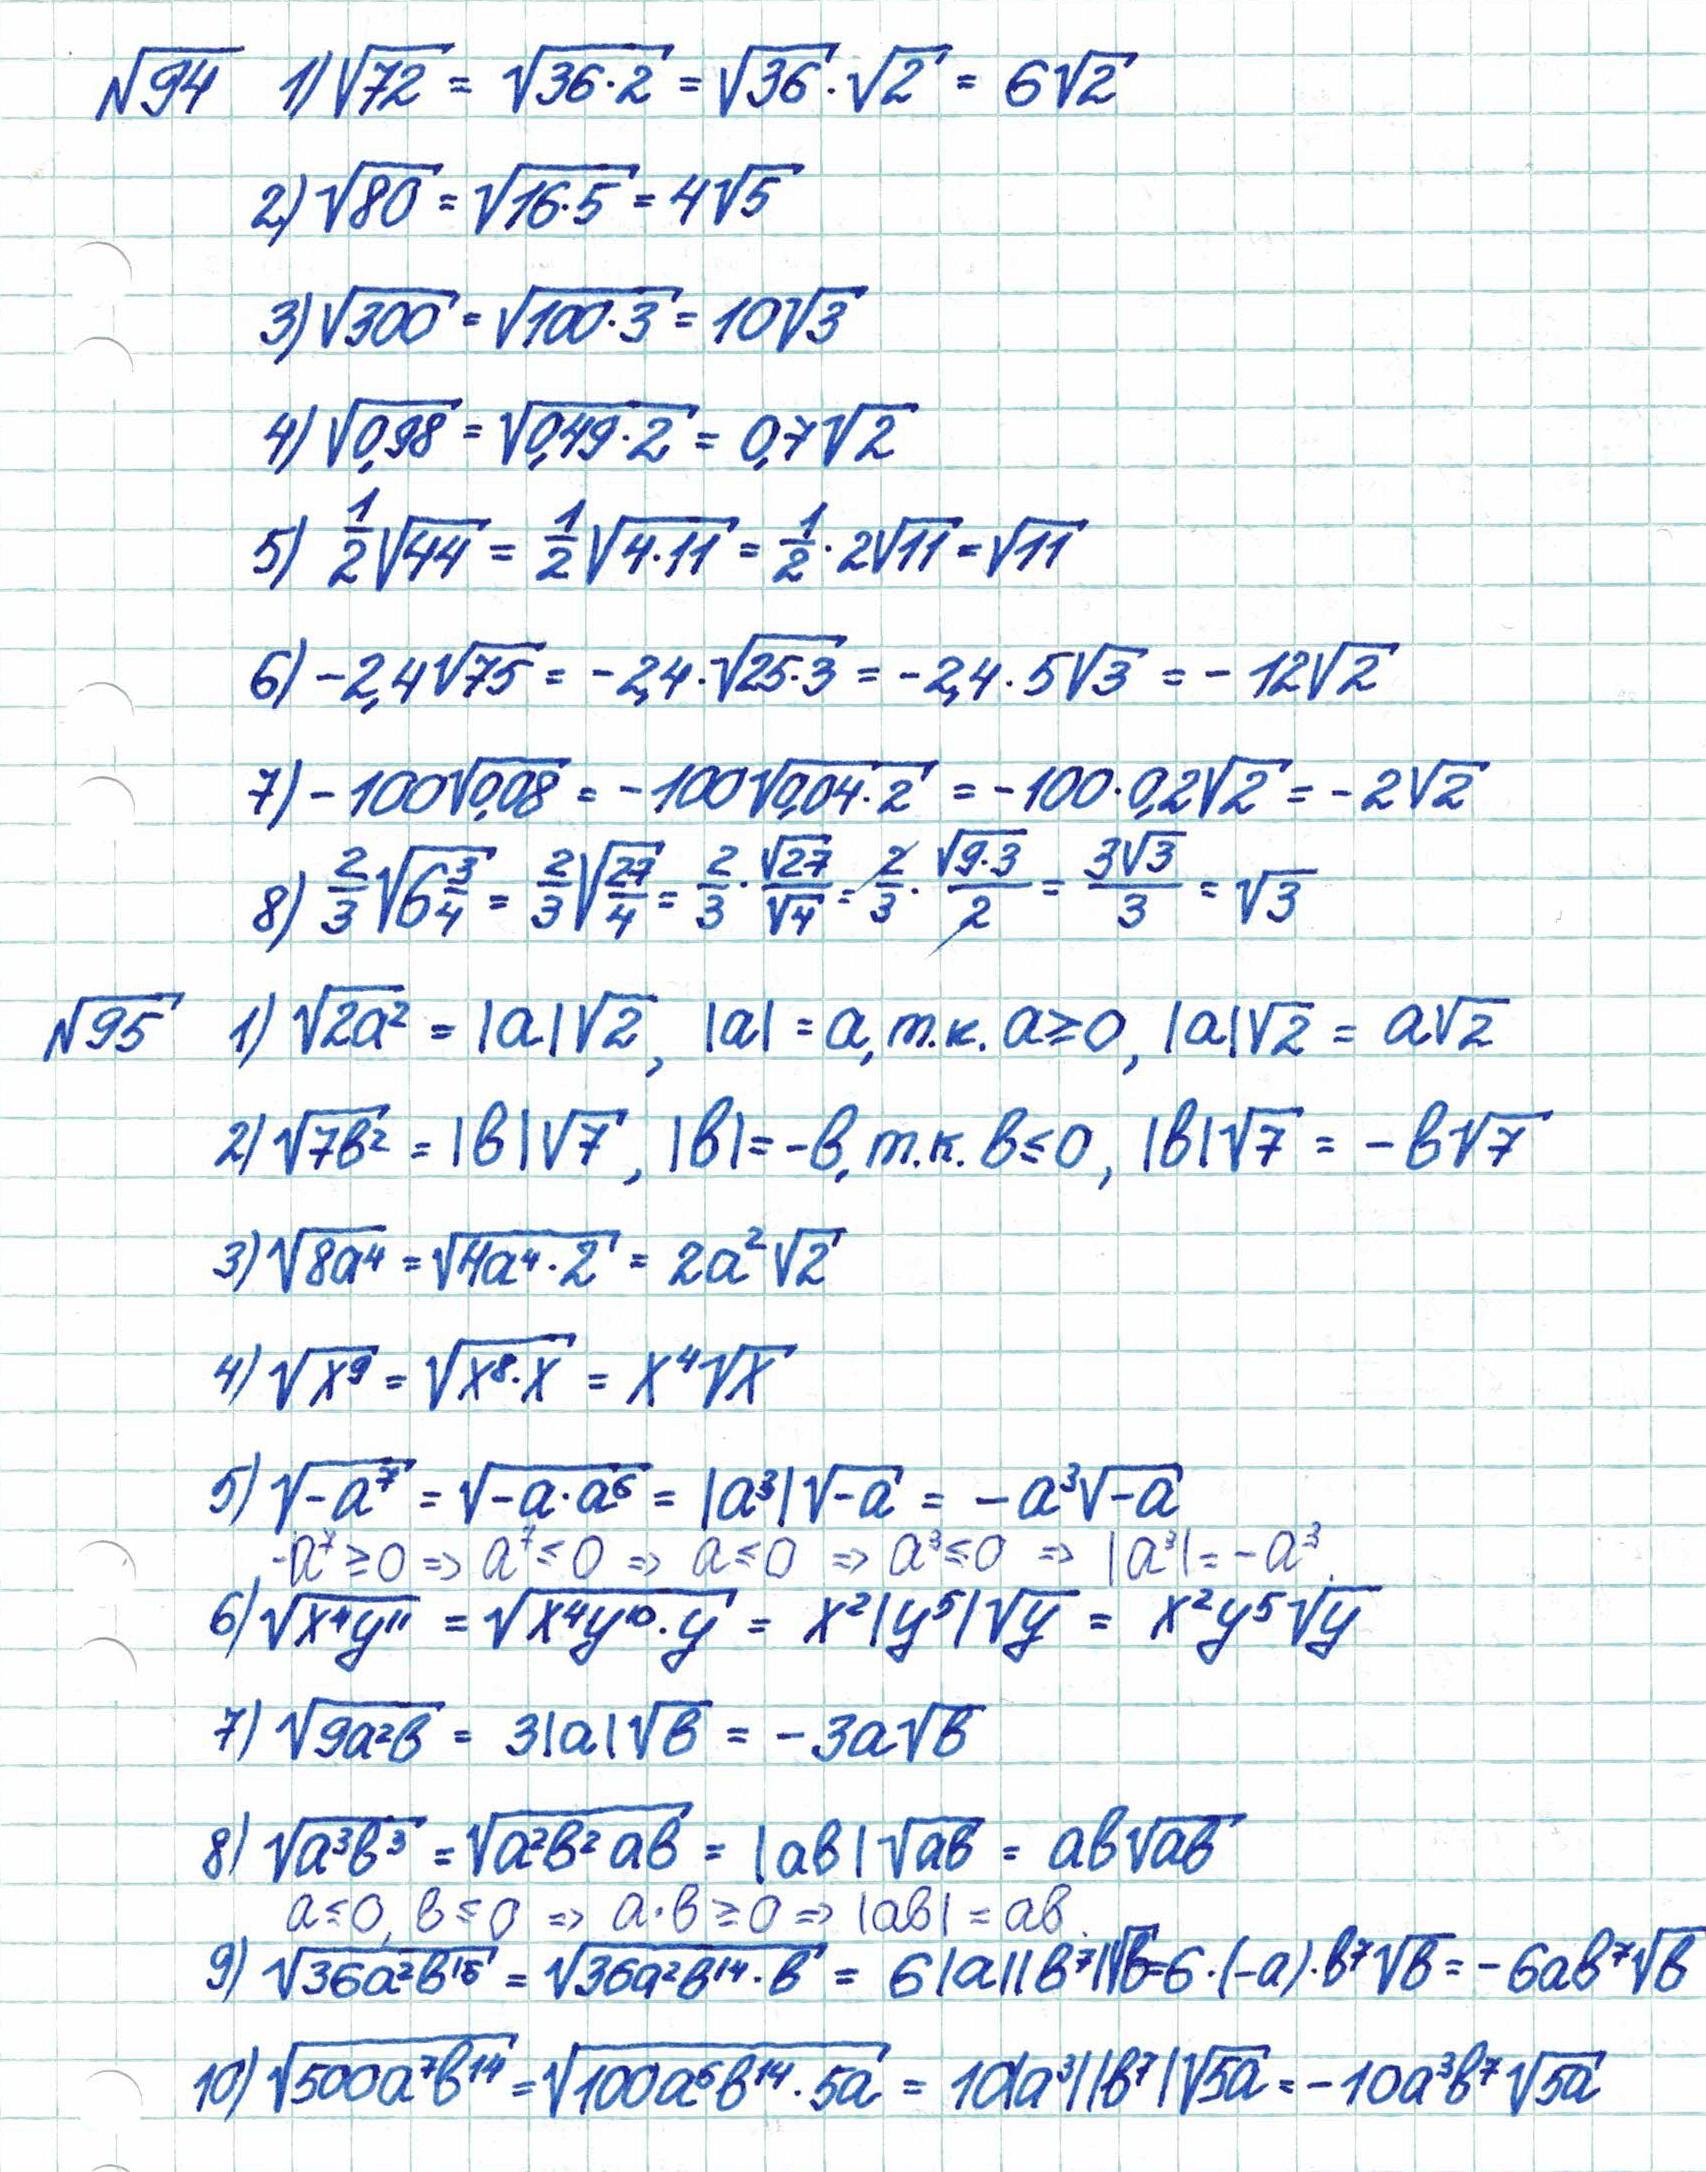 №94 1) √72 = √36·2 = √36 · √2 = 6√2
2) √80 = √16·5 = 4√5
3) √300 = √100·3 = 10√3
4) √0,98 = √0,49·2 = 0,7√2
5) 1/2√44 = 1/2√4·11 = 1/2·2√11 = √11
6) -2,4√75 = -2,4·√25·3 = -2,4·5√3 = -12√2
7) -100√0,08 = -100√0,04·2 = -100·0,2√2 = -2√2
8) 2/3√6 3/4 = 2/3√27/4 = 2/3·√27/√4 = 2/3·√9·3/2 = 3√3/3 = √3
№95 1) √2a² = |a|√2, |a| = a, т.к. a≥0, |a|√2 = a√2
2) √7b² = |b|√7, |b| = -b, т.к. b≤0, |b|√7 = -b√7
3) √8a⁴ = √4a⁴·2 = 2a²√2
4) √x⁹ = √x⁸·x = x⁴√x
5) √-a⁷ = √-a·a⁶ = |a³|√-a = -a³√-a
-a⁷≥0 => a⁷≤0 => a≤0 => a³≤0 => |a³| = -a³.
6) √x⁴y¹¹ = √x⁴y¹⁰·y = x²|y⁵|√y = x²y⁵√y
7) √9a²b = 3|a|√b = -3a√b
8) √a³b³ = √a²b²ab = |ab|√ab = ab√ab
a≤0, b≤0 => a·b≥0 => |ab| = ab.
9) √36a²b¹⁵ = √36a²b¹⁴·b = 6|a||b⁷|√b = 6·(-a)·b⁷√b = -6ab⁷√b
10) √500a⁷b¹⁴ = √100a⁶b¹⁴·5a = 10|a³||b⁷|√5a = -10a³b⁷√5a